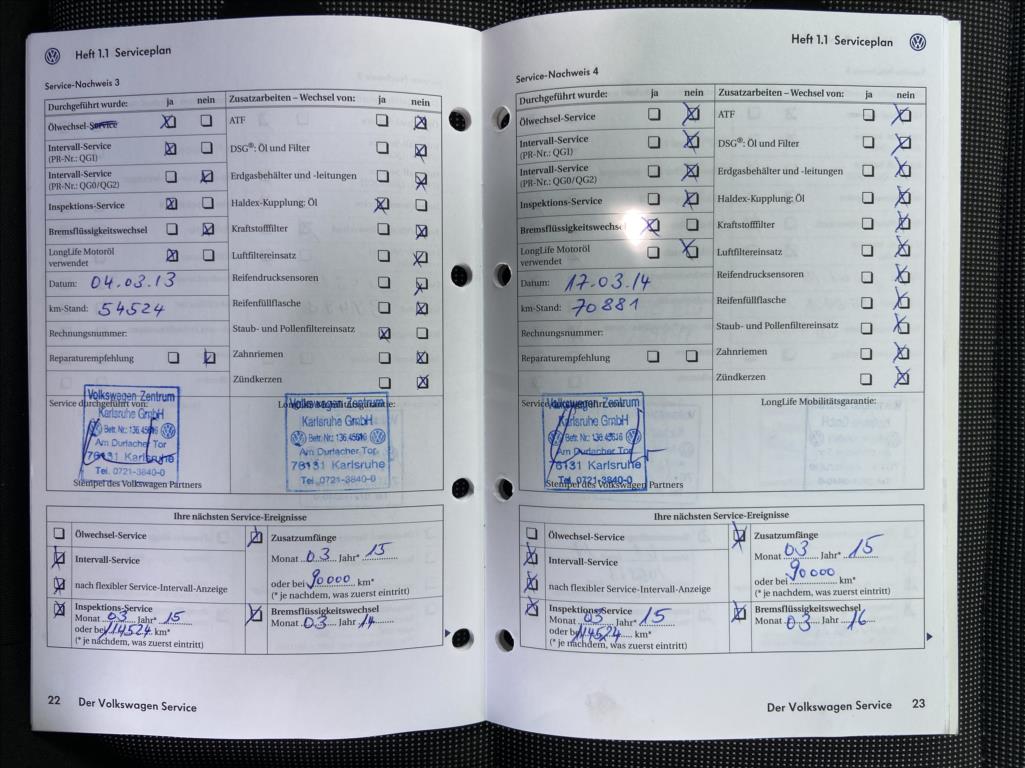 Heft 1.1 Serviceplan
Service-Nachweis 3
Durchgeführt wurde: ja nein
Ölwechsel-Service
Intervall-Service
(PR-Nr.: QG1)
Intervall-Service
(PR-Nr.: QG0/QG2)
Inspektions-Service
Bremsflüssigkeitswechsel
LongLife Motoröl
verwendet
Datum: 04.03.13
km-Stand: 54524
Rechnungsnummer:
Reparaturempfehlung
Zusatzarbeiten – Wechsel von: ja nein
ATF
DSG®: Öl und Filter
Erdgasbehälter und -leitungen
Haldex-Kupplung: Öl
Kraftstofffilter
Luftfiltereinsatz
Reifendrucksensoren
Reifenfüllflasche
Staub- und Pollenfiltereinsatz
Zahnriemen
Zündkerzen
Service durchgeführt von:
Volkswagen Zentrum
Karlsruhe GmbH
Betr. Nr.: 136.45616
Am Durlacher Tor
76131 Karlsruhe
Tel. 0721-3840-0
Stempel des Volkswagen Partners
Volkswagen Zentrum
Karlsruhe GmbH
Betr. Nr.: 136.45616
Am Durlacher Tor
76131 Karlsruhe
Tel. 0721-3840-0
Ihre nächsten Service-Ereignisse
Ölwechsel-Service
Intervall-Service
nach flexibler Service-Intervall-Anzeige
Inspektions-Service
Monat 03 Jahr* 15
oder bei 114524 km*
(* je nachdem, was zuerst eintritt)
Zusatzumfänge
Monat 03 Jahr* 15
oder bei 90000 km*
(* je nachdem, was zuerst eintritt)
Bremsflüssigkeitswechsel
Monat 03 Jahr 14
22 Der Volkswagen Service
Heft 1.1 Serviceplan
Service-Nachweis 4
Durchgeführt wurde: ja nein
Ölwechsel-Service
Intervall-Service
(PR-Nr.: QG1)
Intervall-Service
(PR-Nr.: QG0/QG2)
Inspektions-Service
Bremsflüssigkeitswechsel
LongLife Motoröl
verwendet
Datum: 17.03.14
km-Stand: 70881
Rechnungsnummer:
Reparaturempfehlung
Zusatzarbeiten – Wechsel von: ja nein
ATF
DSG®: Öl und Filter
Erdgasbehälter und -leitungen
Haldex-Kupplung: Öl
Kraftstofffilter
Luftfiltereinsatz
Reifendrucksensoren
Reifenfüllflasche
Staub- und Pollenfiltereinsatz
Zahnriemen
Zündkerzen
Volkswagen Zentrum
Karlsruhe GmbH
Betr. Nr.: 136.45616
Am Durlacher Tor
76131 Karlsruhe
Tel. 0721-3840-0
Stempel des Volkswagen Partners
LongLife Mobilitätsgarantie:
Ihre nächsten Service-Ereignisse
Ölwechsel-Service
Intervall-Service
nach flexibler Service-Intervall-Anzeige
Inspektions-Service
Monat 03 Jahr* 15
oder bei 114524 km*
(* je nachdem, was zuerst eintritt)
Zusatzumfänge
Monat 03 Jahr* 15
oder bei 90000 km*
(* je nachdem, was zuerst eintritt)
Bremsflüssigkeitswechsel
Monat 03 Jahr 16
Der Volkswagen Service 23